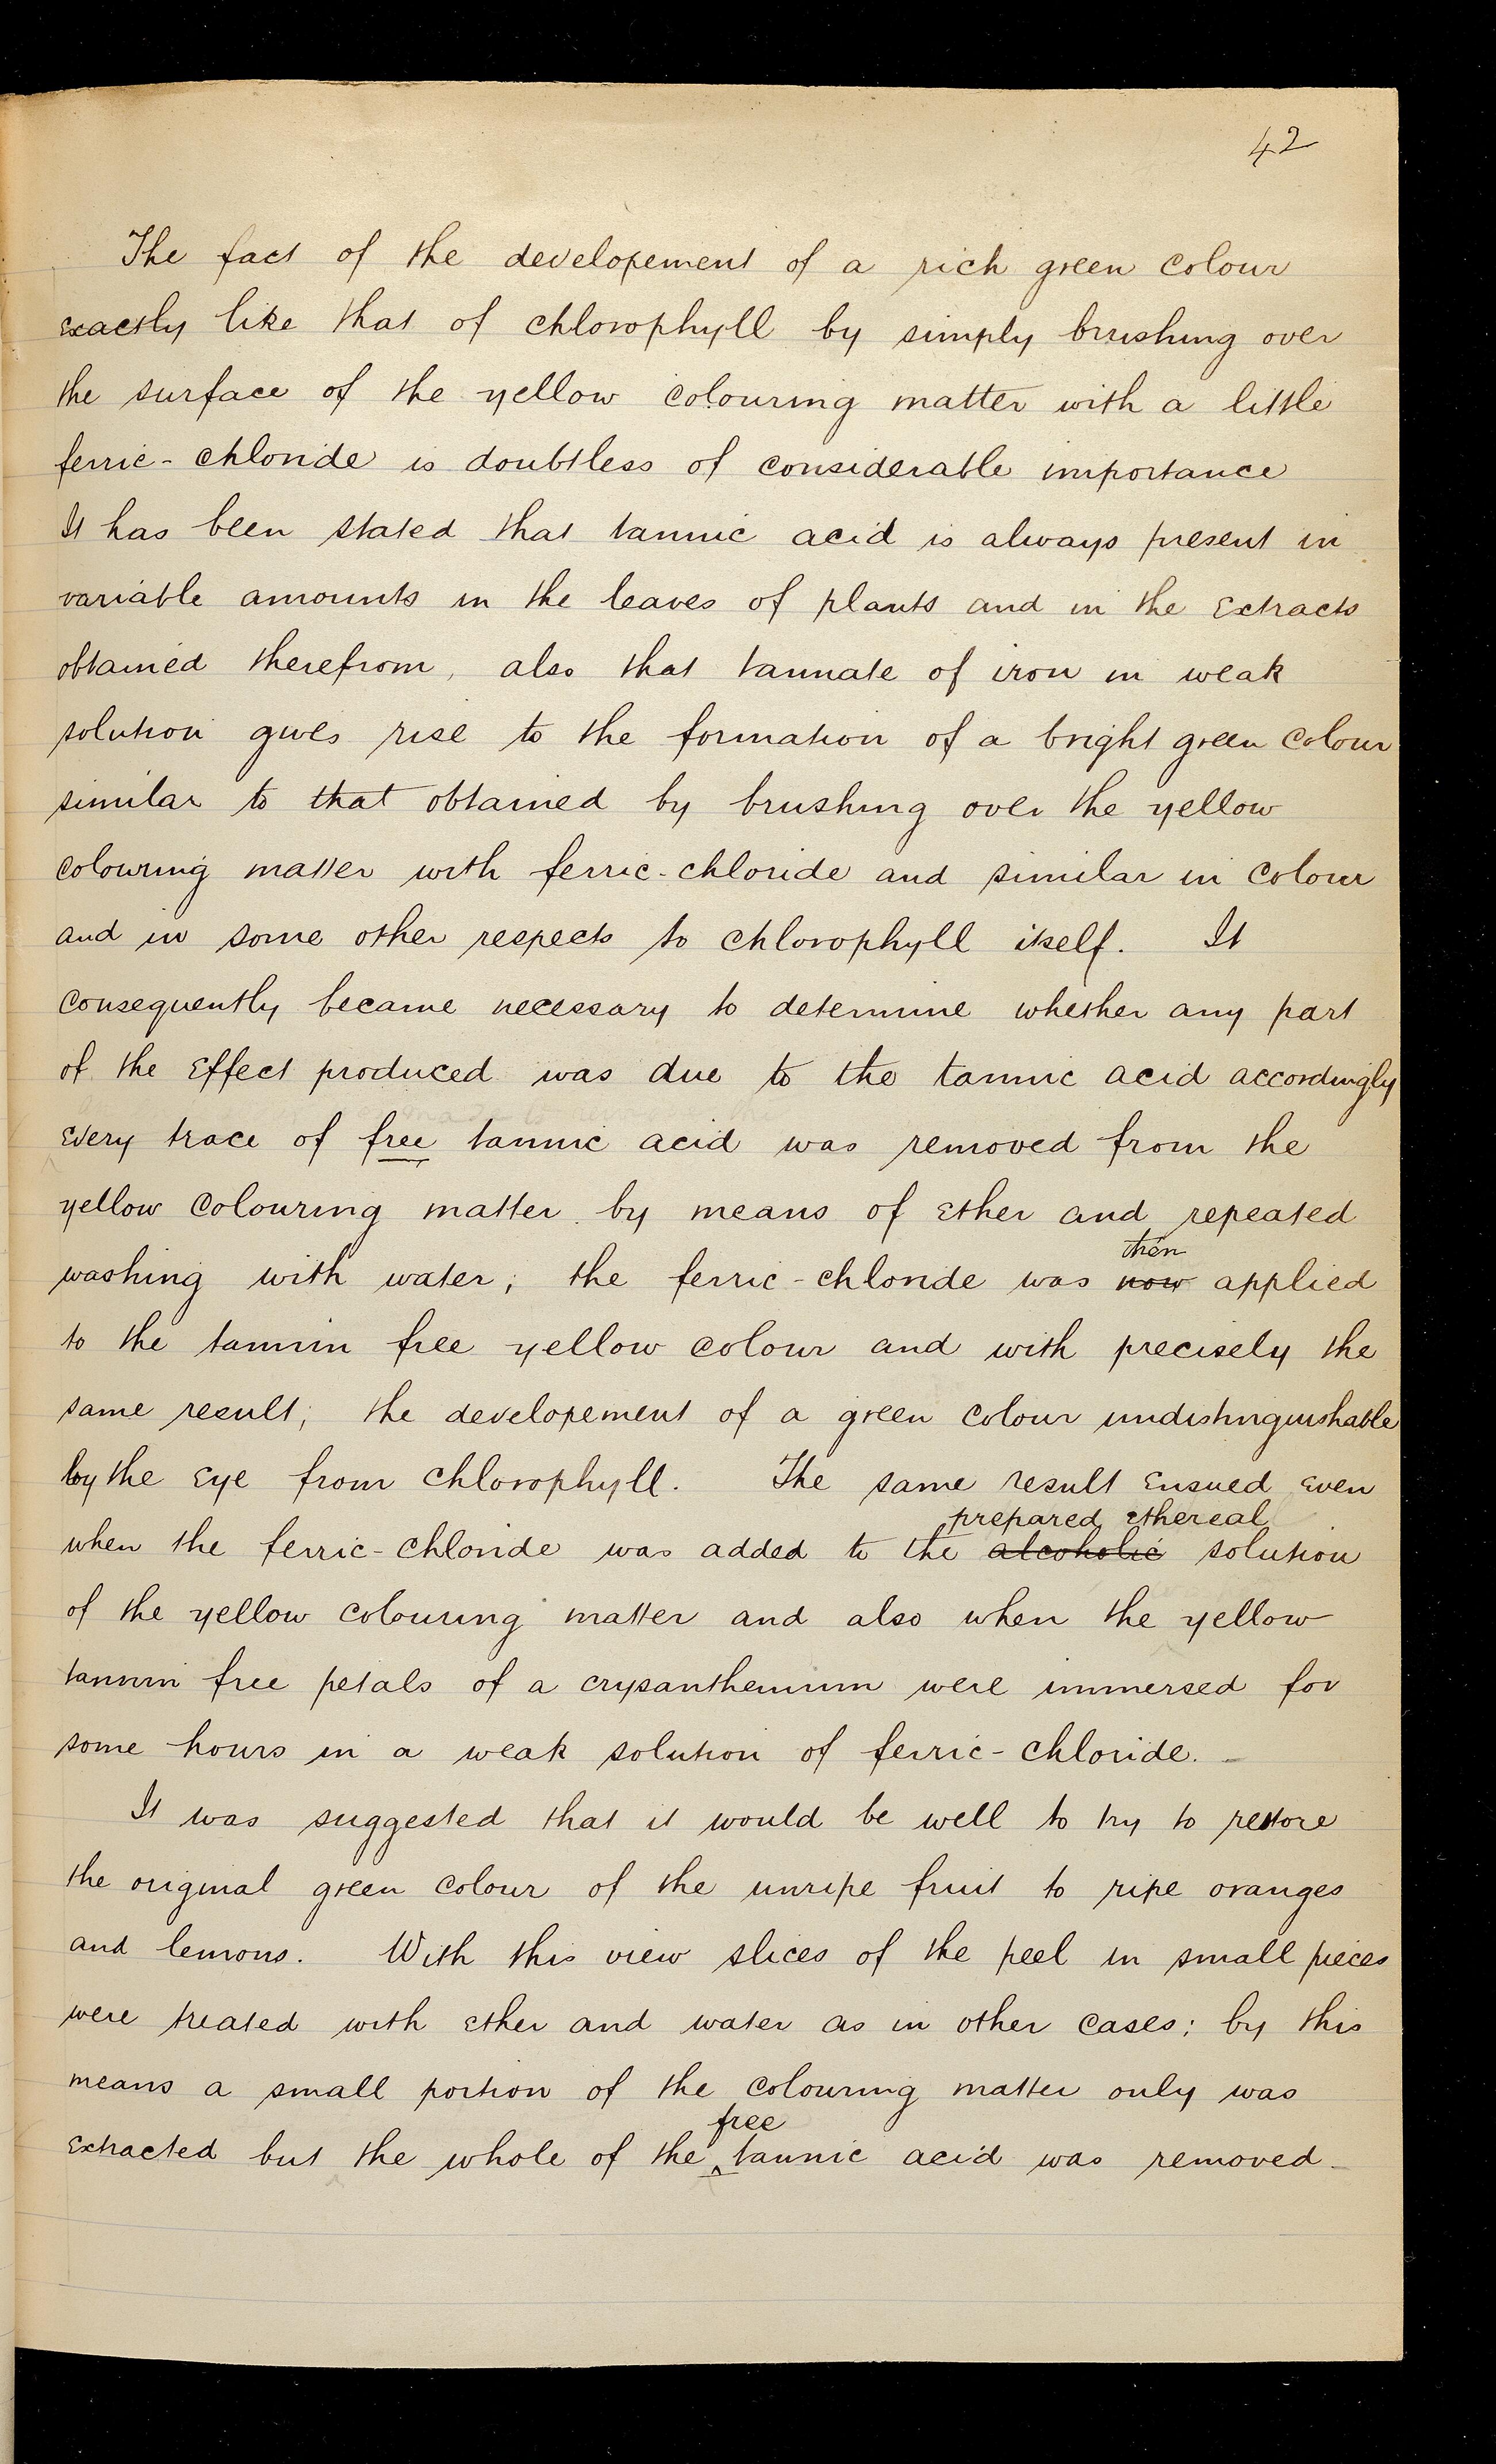 42
The fact of the developement of a rich green colour
exactly like that of chlorophyll by simply brushing over
the surface of the yellow colouring matter with a little
ferric-chloride is doubtless of considerable importance
It has been stated that tannic acid is always present in
variable amounts in the leaves of plants and in the extracts
obtained therefrom, also that tannate of iron in weak
solution gives rise to the formation of a bright green colour
similar to that obtained by brushing over the yellow
colouring matter with ferric-chloride and similar in colour
and in some other respects to chlorophyll itself. It
consequently became necessary to determine whether any part
of the effect produced was due to the tannic acid accordingly
every trace of free tannic acid was removed from the
yellow colouring matter by means of ether and repeated
then
washing with water; the ferric-chloride was now applied
to the tannin free yellow colour and with precisely the
same result; the developement of a green colour undistinguishable
by the eye from chlorophyll. The same result ensued even
prepared ethereal
when the ferric-chloride was added to the alcoholic solution
of the yellow colouring matter and also when the yellow
tannin free petals of a crysanthemum were immersed for
some hours in a weak solution of ferric-chloride. -
It was suggested that it would be well to try to restore
the original green colour of the unripe fruit to ripe oranges
and lemons. With this view slices of the peel in small pieces
were treated with ether and water as in other cases; by this
means a small portion of the colouring matter only was
free
extracted but the whole of the tannic acid was removed -